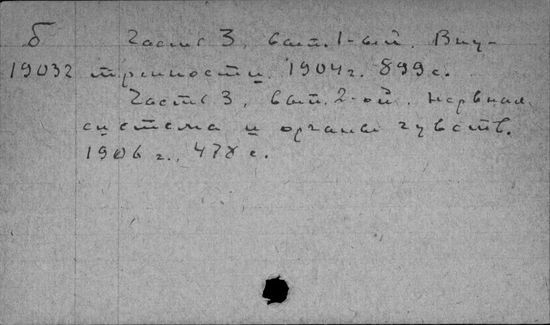 Б Часть 3, вып. 1-ый. Вну-
19032 тренности. 1904 г. 899 с.
Часть 3, вып. 2-ой. Нервная
система и органы чувств.
1906 г., 478 с.